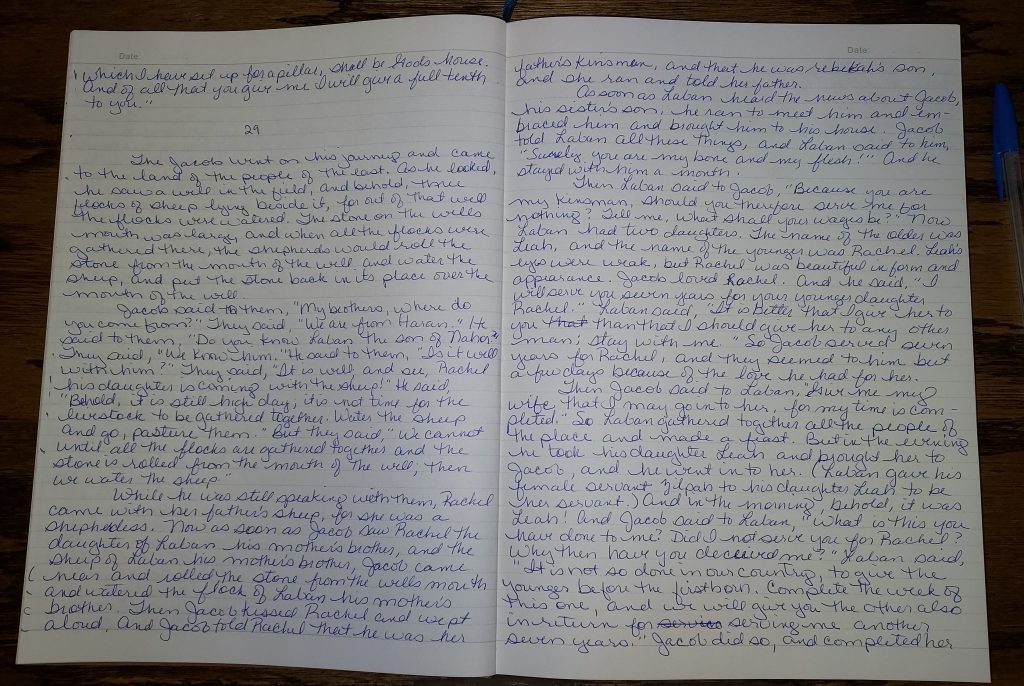 Date:
which I have set up for a pillar, shall be God's House.
And of all that you give me I will give a full tenth
to you."
29
The Jacob went on his journey and came
to the land of the people of the east. As he looked,
he saw a well in the field, and behold, three
flocks of sheep lying beside it, for out of that well
the flocks were watered. The stone on the wells
mouth was large, and when all the flocks were
gathered there, the shepherds would roll the
stone from the mouth of the well and water the
sheep, and put the stone back in its place over the
mouth of the well.
Jacob said to them, "My brothers, where do
you come from?" They said, "We are from Haran." He
said to them, "Do you know Laban the son of Nahor?"
They said, "We know him." He said to them, "Is it well
with him?" They said, "It is well, and see, Rachel
his daughter is coming with the sheep!" He said,
"Behold, it is still high day; it is not time for the
livestock to be gathered together. Water the sheep
and go, pasture them." But they said, "We cannot
until all the flocks are gathered together and the
stone is rolled from the mouth of the well; then
we water the sheep."
While he was still speaking with them, Rachel
came with her father's sheep, for she was a
shepherdess. Now as soon as Jacob saw Rachel the
daughter of Laban his mother's brother, and the
sheep of Laban his mother's brother, Jacob came
near and rolled the stone from the wells mouth
and watered the flock of Laban his mother's
brother. Then Jacob kissed Rachel and wept
aloud. And Jacob told Rachel that he was her
Date:
father's kinsman, and that he was rebekah's son,
and she ran and told her father.
As soon as Laban heard the news about Jacob,
his sister's son, he ran to meet him and em-
braced him and brought him to his house. Jacob
told Laban all these things, and Laban said to him,
"Surely, you are my bone and my flesh!" And he
stayed with him a month.
Then Laban said to Jacob, "Because you are
my kinsman, should you therefore serve me for
nothing? Tell me, what shall your wages be?" Now
Laban had two daughters. The name of the older was
Leah, and the name of the younger was Rachel. Leah's
eyes were weak, but Rachel was beautiful in form and
appearance. Jacob loved Rachel. And he said, "I
will serve you seven years for your younger daughter
Rachel." Laban said, "It is better that I give her to
you that than that I should give her to any other
man; stay with me." So Jacob served seven
years for Rachel, and they seemed to him but
a few days because of the love he had for her.
Then Jacob said to Laban, "Give me my
wife that I may go in to her, for my time is com-
pleted." So Laban gathered together all the people of
the place and made a feast. But in the evening
he took his daughter Leah and brought her to
Jacob, and he went in to her. (Laban gave his
female servant Zilpah to his daughter Leah to be
her servant.) And in the morning, behold, it was
Leah! And Jacob said to Laban, "What is this you
have done to me? Did I not serve you for Rachel?
Why then have you deceived me?" Laban said,
"It is not so done in our country, to give the
younger before the firstborn. Complete the week of
this one, and we will give you the other also
in return for service serving me another
seven years." Jacob did so, and completed her